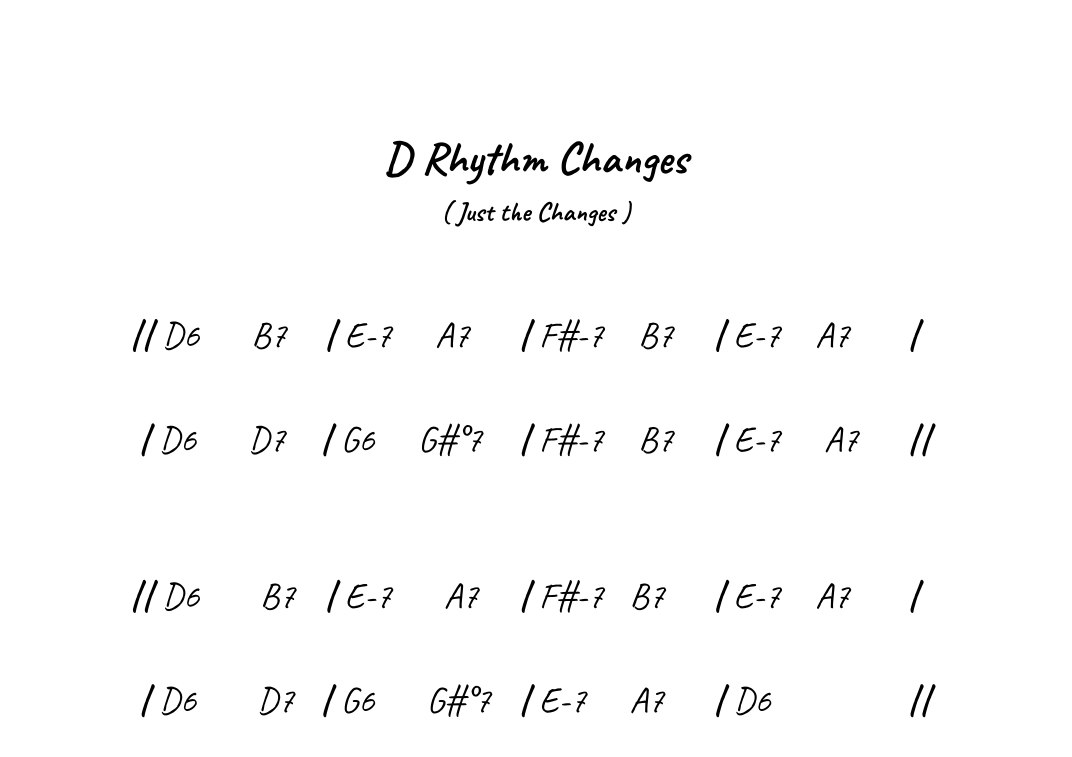 D Rhythm Changes
( Just the Changes )
|| D6 B7 | E-7 A7 | F#-7 B7 | E-7 A7 |
| D6 D7 | G6 G#°7 | F#-7 B7 | E-7 A7 ||
|| D6 B7 | E-7 A7 | F#-7 B7 | E-7 A7 |
| D6 D7 | G6 G#°7 | E-7 A7 | D6 ||